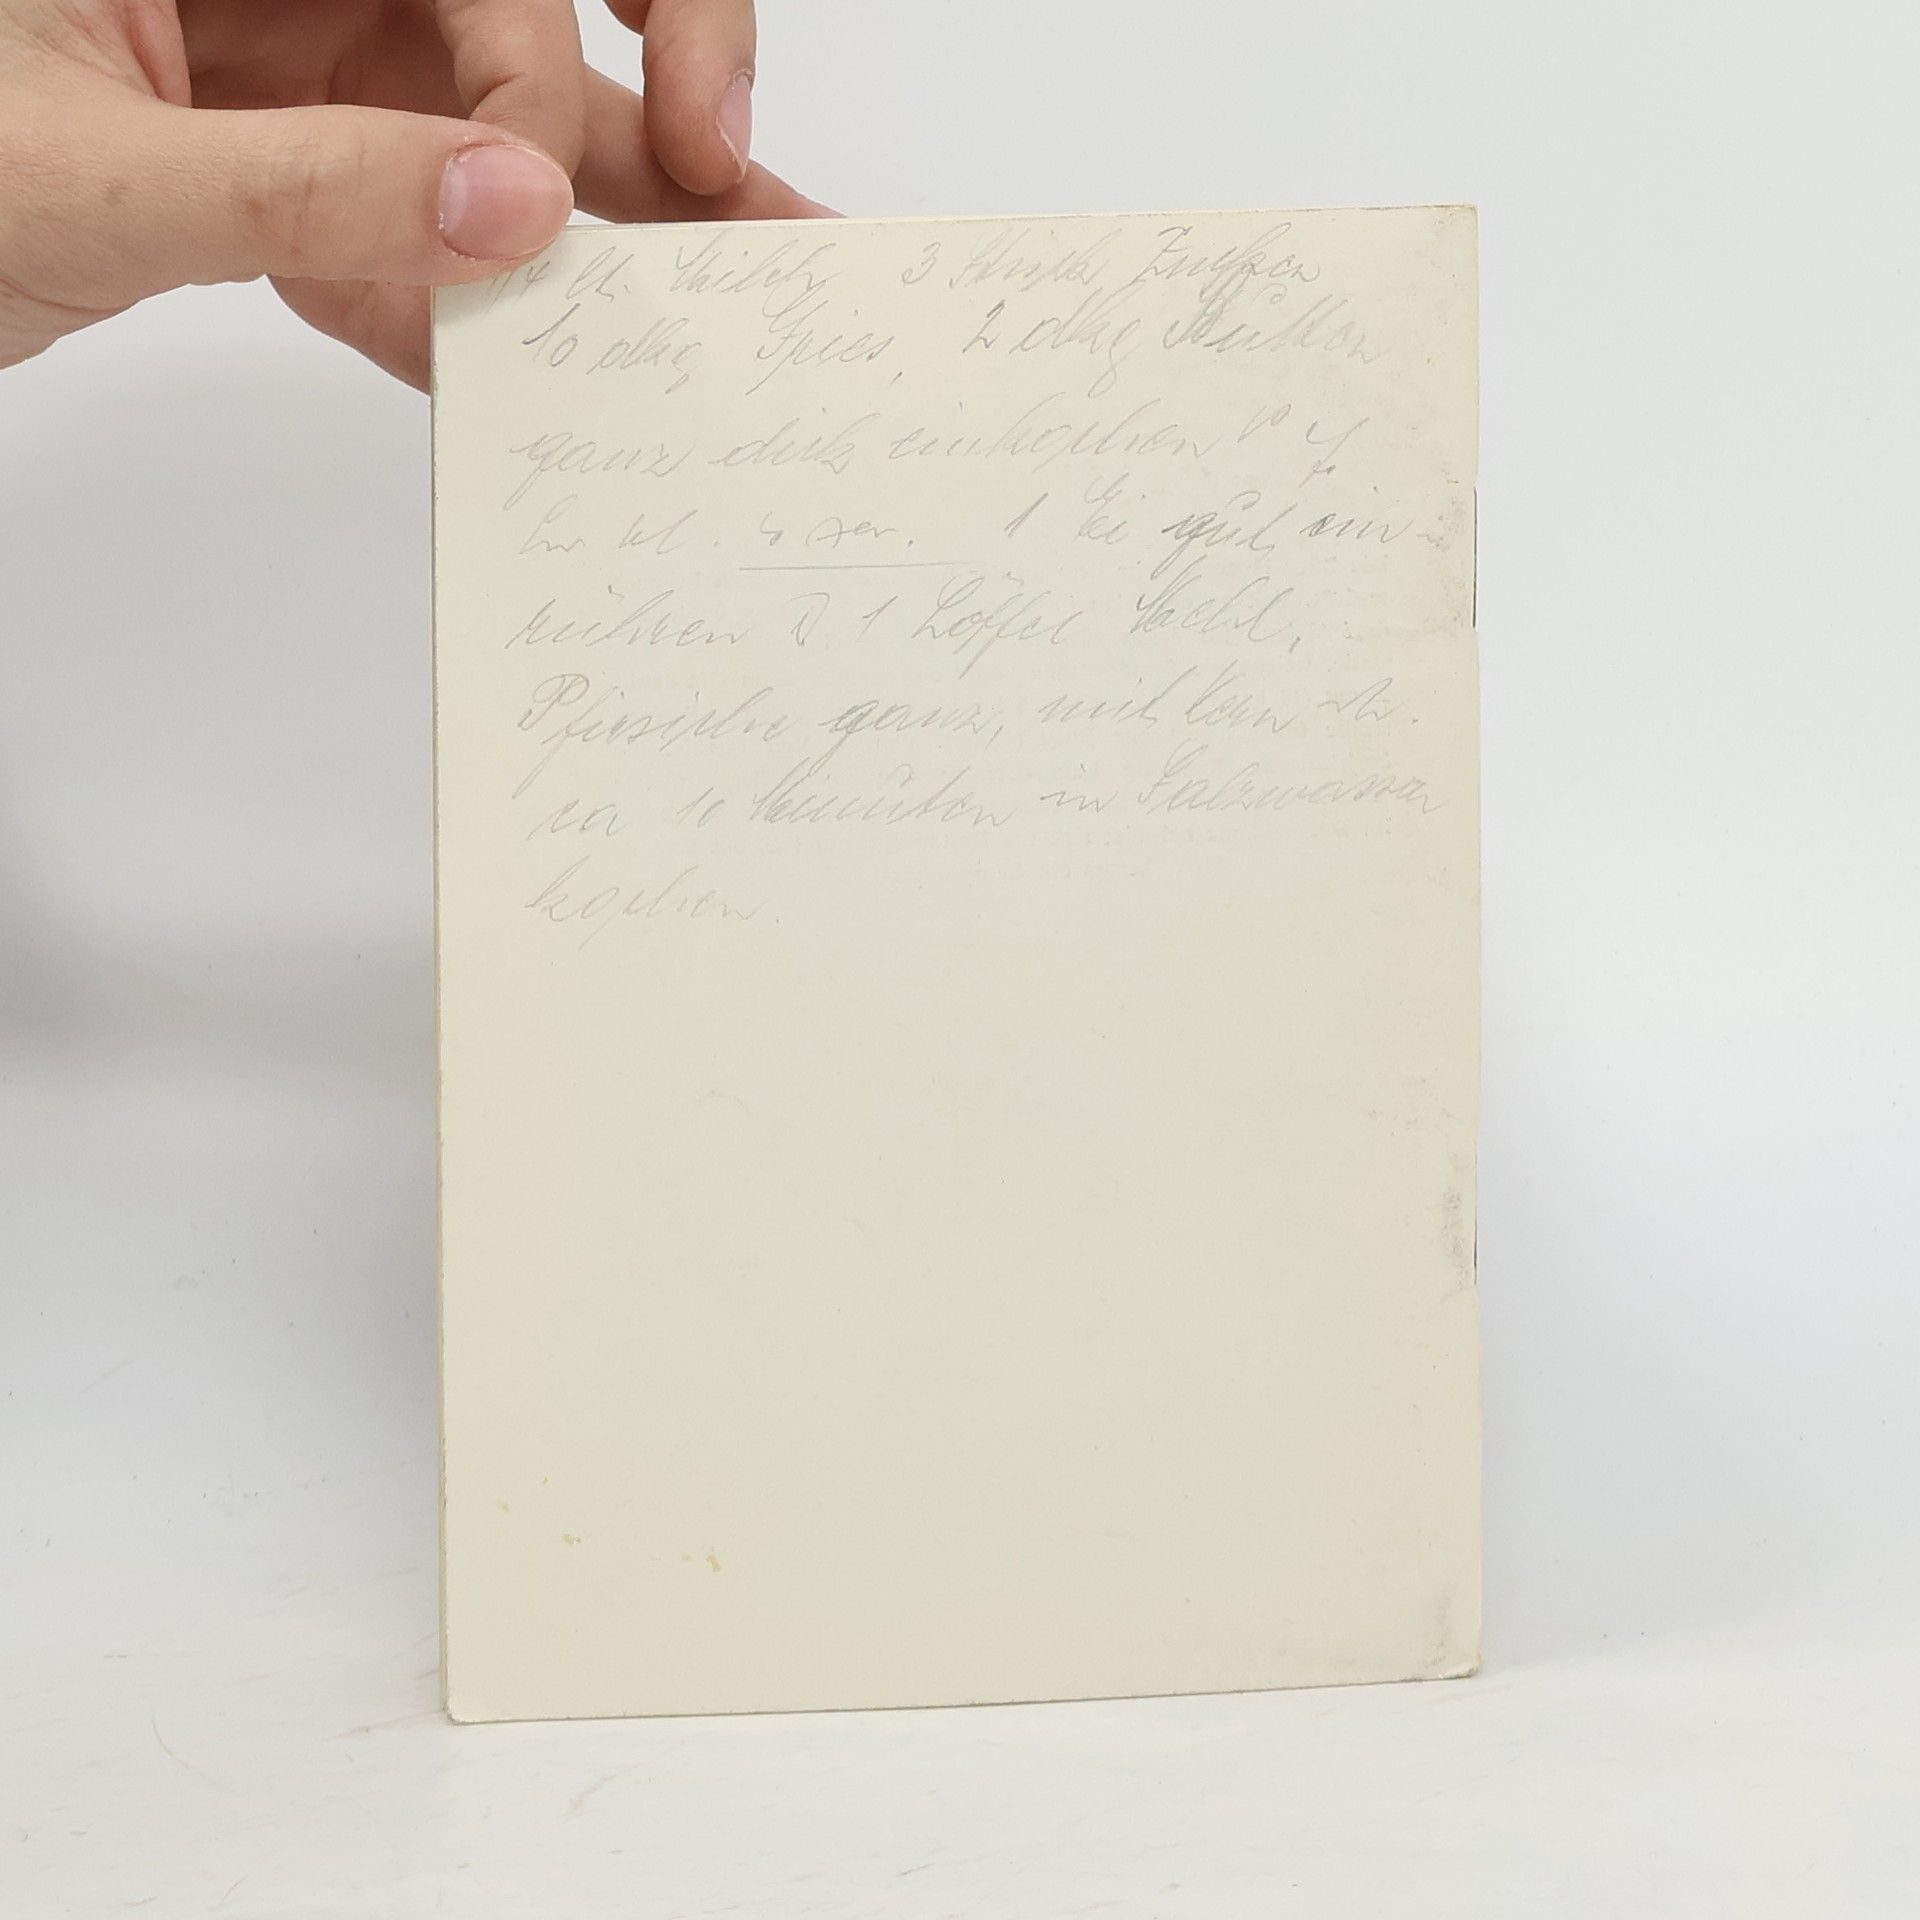 1/4 lt. Milch 3 Stück Zucker
10 dkg Gries, 2 dkg Butter
ganz dick einkochen
1 Ei gut ein-
rühren 1 Löffel Mehl.
Pfirsiche ganz, mit Kern
ca 10 Minuten in Salzwasser
kochen.